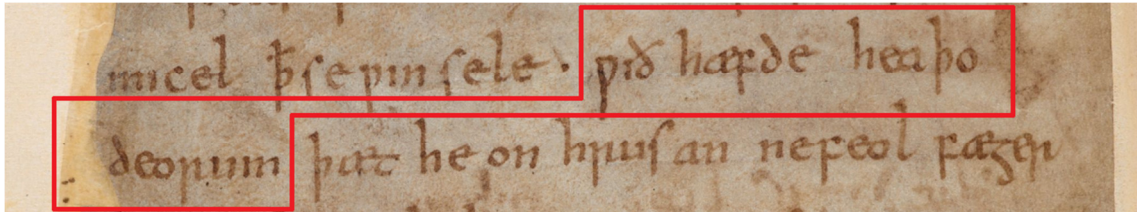 micel ꝥ se ƿin sele · ƿið hæfde heaþo
deorum þæt he on hrusan ne feol fæger